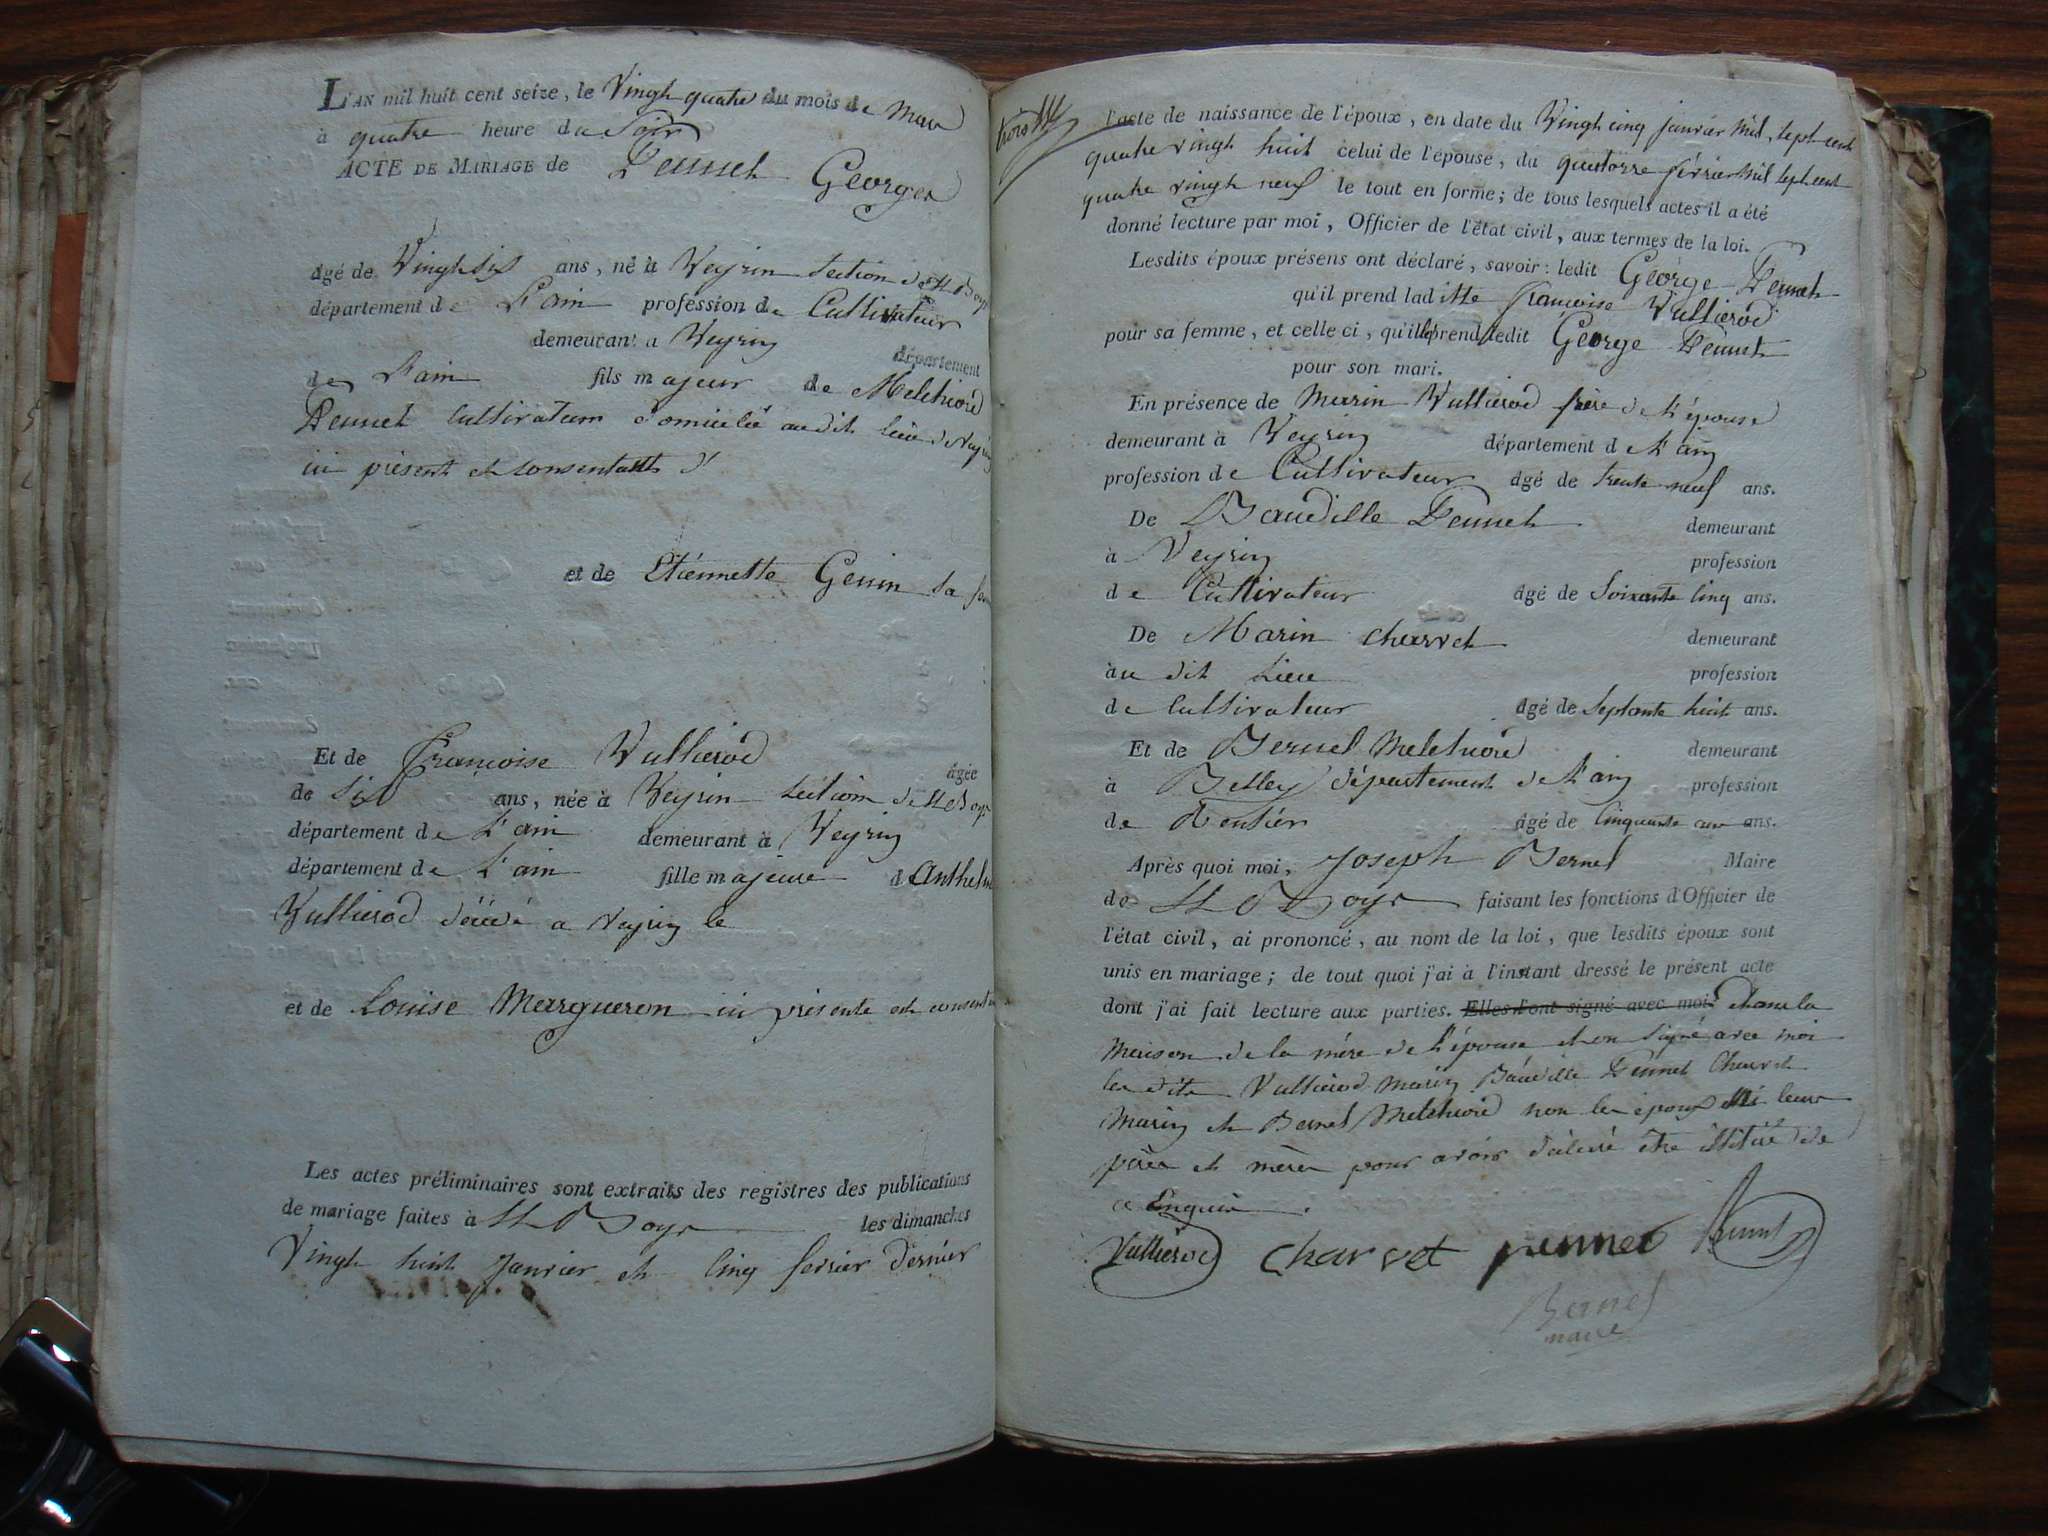 L'AN mil huit cent seize, le Vingh quatre du mois de Mars
à quatre heure du Soir
ACTE DE MARIAGE de Pennet George
âgé de Vingh Six ans, né à Veyrin Section de St Boys
département de L'ain profession de Cultivateur
demeurant a Veyrin département
de L'ain fils majeur de Melchiord
Pennet Cultivateur domicilié au dit lieu de Veyrin
ici présent et consentant d'
et de Etiennette Genin sa
Et de Françoise Vullierod âgée
de Six ans, née à Veyrin Section de St Boys
département de L'ain demeurant à Veyrin
département de L'ain fille majeure d Anthelme
Vullierod décédé a Veyrin le
et de Louise Margueron ici présente et
Les actes préliminaires sont extraits des registres des publications
de mariage faites à St Boys les dimanches
Vingh huit Janvier et Cinq fevrier dernier
l'acte de naissance de l'époux, en date du Vingh cinq janvier Mil sept cent
quatre vingh huit celui de l'épouse, du quatorze février Mil sept cent
quatre vingh neuf le tout en forme; de tous lesquels actes il a été
donné lecture par moi, Officier de l'état civil, aux termes de la loi.
Lesdits époux présens ont déclaré, savoir: ledit George Pennet
qu'il prend laditte françoise Vullierod
pour sa femme, et celle ci, qu'elle prend ledit George Pennet
pour son mari.
En présence de Marin Vullierod frère de L'épouse
demeurant à Veyrin département de L'ain
profession de Cultivateur âgé de trente neuf ans.
De Baudille Pennet demeurant
à Veyrin profession
de Cultivateur âgé de Soixante Cinq ans.
De Marin charvet demeurant
àu dit Lieu profession
de Cultivateur âgé de Septante huit ans.
Et de Bernel Melchiord demeurant
à Belley département de L'ain profession
de Rentier âgé de Cinquante ans.
Après quoi moi, Joseph Bernel Maire
de St Boys faisant les fonctions d'Officier de
l'état civil, ai prononcé, au nom de la loi, que lesdits époux sont
unis en mariage; de tout quoi j'ai à l'instant dressé le présent acte
dont j'ai fait lecture aux parties. Elles l'ont signé avec moi. dans la
Maison de la mére de L'épouse et on Signé avec moi
les dits Vullierod Marin Baudille Pennet Charvet
Marin et Bernel Melchiord non les époux ni leur
péres et mères pour avoir déclaré être illitéré de
ce Enquis.
Vullierod Charvet pennet
Bernel
maire